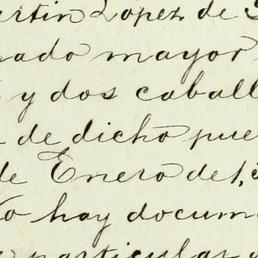 rtin Lopez de
nado mayor
y dos caball
de dicho pue
de Enero de 1,5
No hay docum
particular